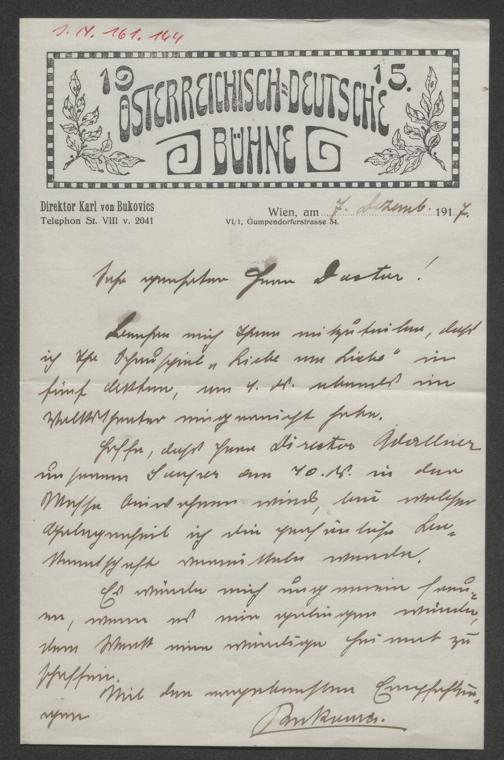 J. N. 161.144
1915.
ÖSTERREICHISCH=DEUTSCHE
BÜHNE
Direktor Karl von Bukovics
Telephon St. VIII v. 2041
Wien, am 7. Dezemb. 1917.
VI/1, Gumpendorferstrasse 34.
Sehr geehrter Herr Doctor!
Beehre mich Ihnen mitzuteilen, daß
ich Ihr Schauspiel „Liebe um Liebe" in
fünf Akten, am 4. ds. abends im
Volkstheater eingereicht habe.
Hoffe, daß Herr Director
unserem am 10. ds. in der
Anwohnen wird, bei welcher
Gelegenheit ich die persönliche Be-
kanntschaft vermitteln werde.
Es würde mich ungemein freu-
en, wenn es mir gelingen würde,
dem Werk eine würdige Heimat zu
schaffen.
Mit den ergebensten Empfehlun-
gen